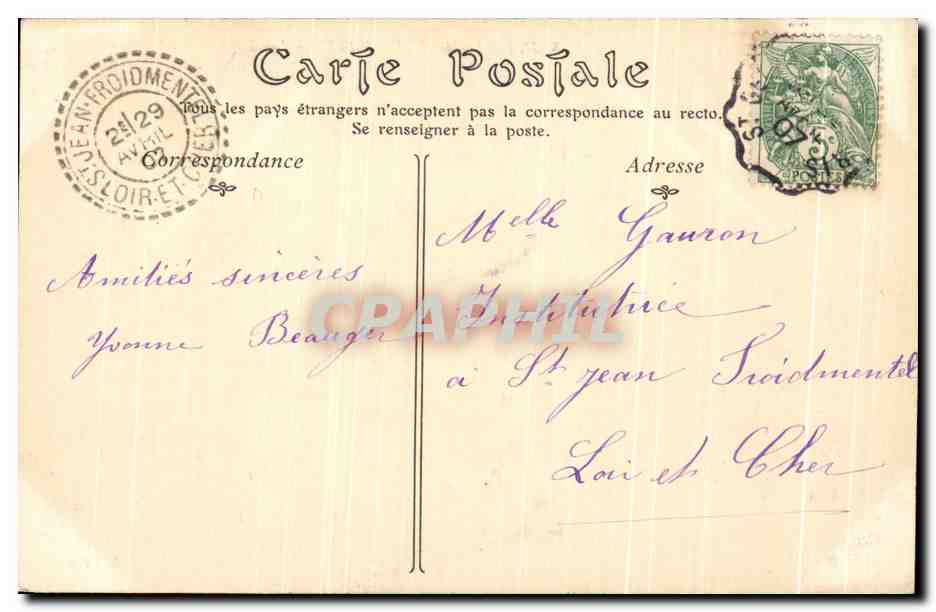 Carte Postale
Tous les pays étrangers n'acceptent pas la correspondance au recto.
Se renseigner à la poste.
ST JEAN-FROIDMENTEL
LOIR-ET-CHER
2E 29
AVRIL
07
07
5c
POSTES
Correspondance
Adresse
Amitiés sincères
Yvonne Beauger
Melle Gauron
Institutrice
à St Jean Froidmentel
Loir et Cher
CPAPHIL